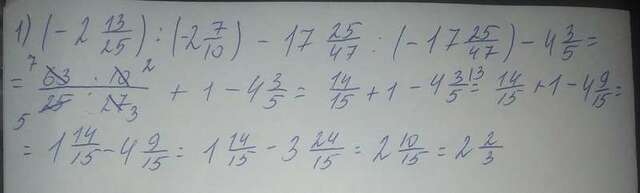 1) (-2 13/25) : (-2 7/10) - 17 25/47 : (-17 25/47) - 4 3/5 =
= 63 7 · 10 2 / 25 5 · 27 3 + 1 - 4 3/5 = 14/15 + 1 - 4 3/5 13 = 14/15 + 1 - 4 9/15 =
= 1 14/15 - 4 9/15 = 1 14/15 - 3 24/15 = 2 10/15 = 2 2/3